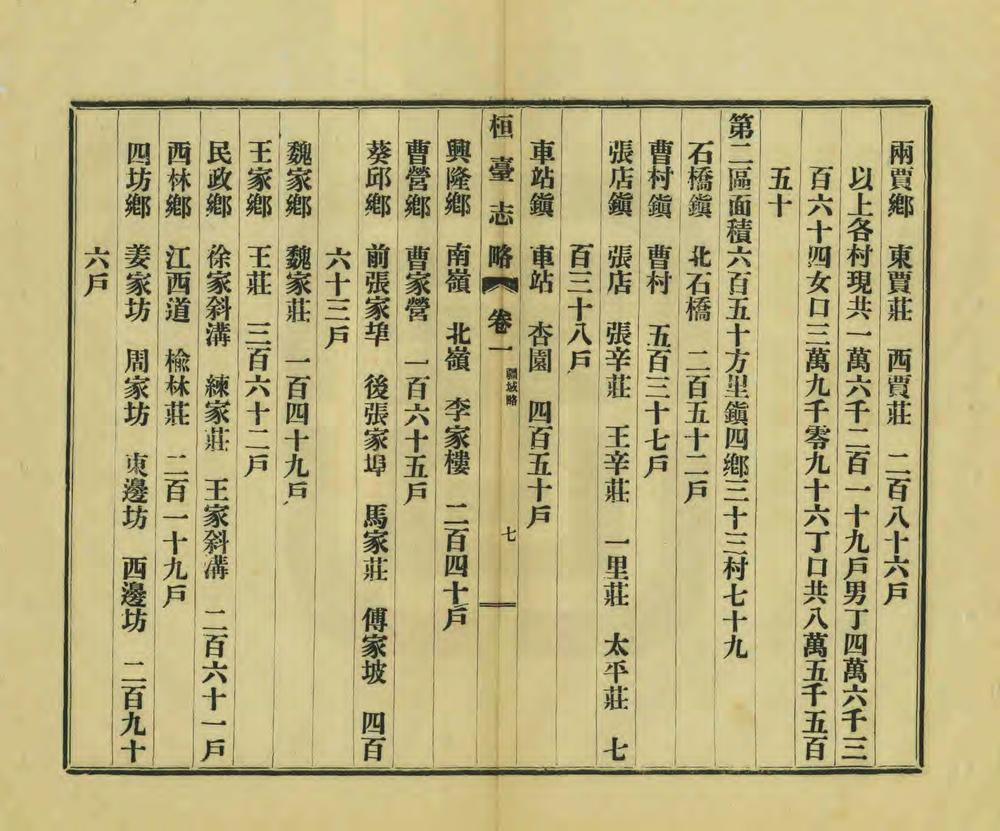 兩賈鄉　東賈莊　西賈莊　二百八十六戶
以上各村現共一萬六千二百一十九戶男丁四萬六千三
百六十四女口三萬九千零九十六丁口共八萬五千五百
五十
第二區面積六百五十方里鎮四鄉三十三村七十九
石橋鎮　北石橋　二百五十二戶
曹村鎮　曹村　五百三十七戶
張店鎮　張店　張辛莊　王辛莊　一里莊　太平莊　七
百三十八戶
車站鎮　車站　杏園　四百五十戶
桓臺志略　卷一　疆域略　七
興隆鄉　南嶺　北嶺　李家樓　二百四十戶
曹營鄉　曹家營　一百六十五戶
葵邱鄉　前張家埠　後張家埠　馬家莊　傅家坡　四百
六十三戶
魏家鄉　魏家莊　一百四十九戶
王家鄉　王莊　三百六十二戶
民政鄉　徐家斜溝　練家莊　王家斜溝　二百六十一戶
西林鄉　江西道　楡林莊　二百一十九戶
四坊鄉　姜家坊　周家坊　東邊坊　西邊坊　二百九十
六戶